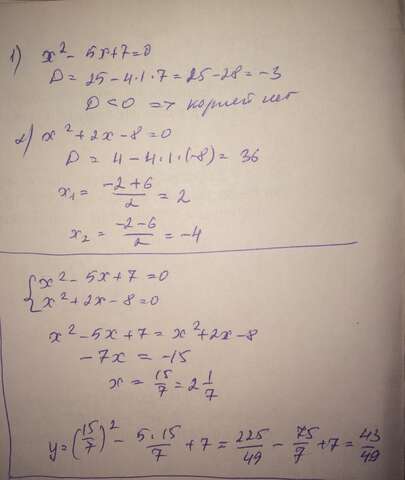 1) x² - 5x+7=0
D= 25 - 4·1·7 = 25 - 28 = -3
D<0 => корней нет
2) x² + 2x - 8 = 0
D = 4 - 4·1·(-8) = 36
x₁ = (-2+6)/2 = 2
x₂ = (-2-6)/2 = -4
{ x² - 5x + 7 = 0
x² + 2x - 8 = 0
x² - 5x + 7 = x² + 2x - 8
-7x = -15
x = 15/7 = 2 1/7
y = (15/7)² - 5·15/7 + 7 = 225/49 - 75/7 + 7 = 43/49